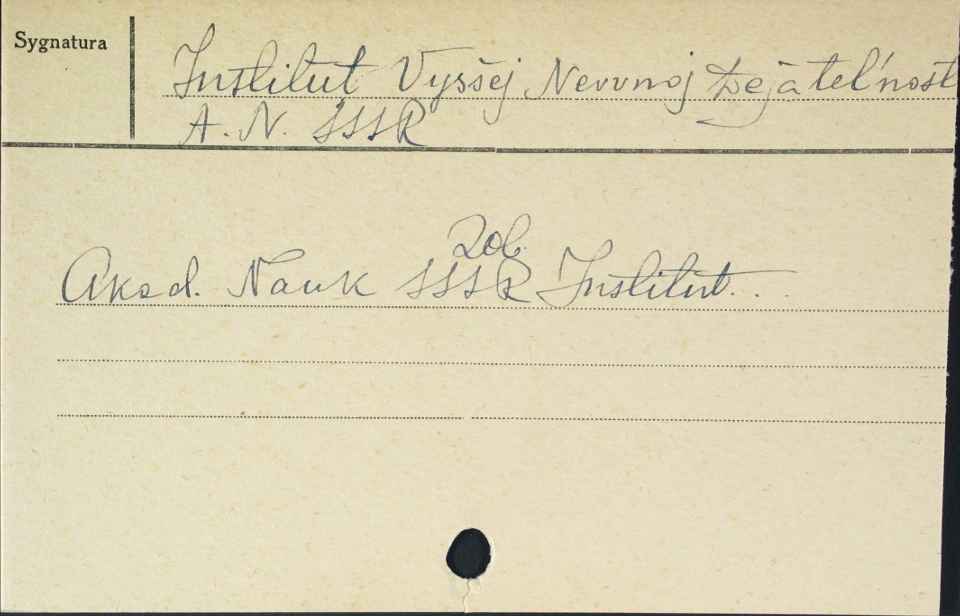 Sygnatura
Institut Vysšej Nervnoj Dejatel'nosti
A. N. SSSR
Zob.
Akad. Nauk SSSR Institut...